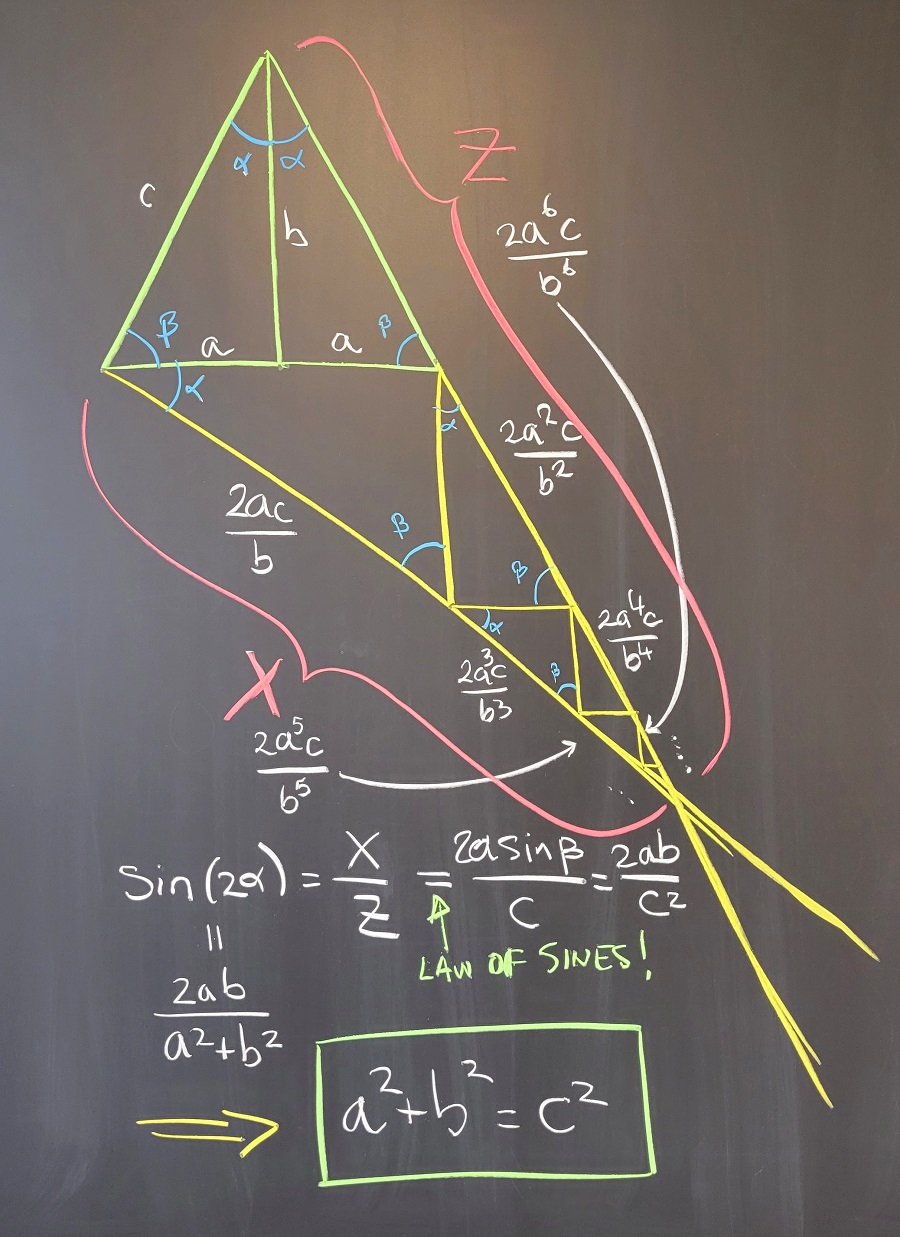 Z
α α
c
b
2a⁶c/b⁶
β a a β
α
α
2a²c/b²
2ac/b
β
β
α
2a⁴c/b⁴
2a³c/b3
β
X
2a⁵c/b⁵
Sin(2α) = X/Z = 2a sinβ/C = 2ab/C²
LAW OF SINES!
=
2ab/a²+b²
a²+b² = c²